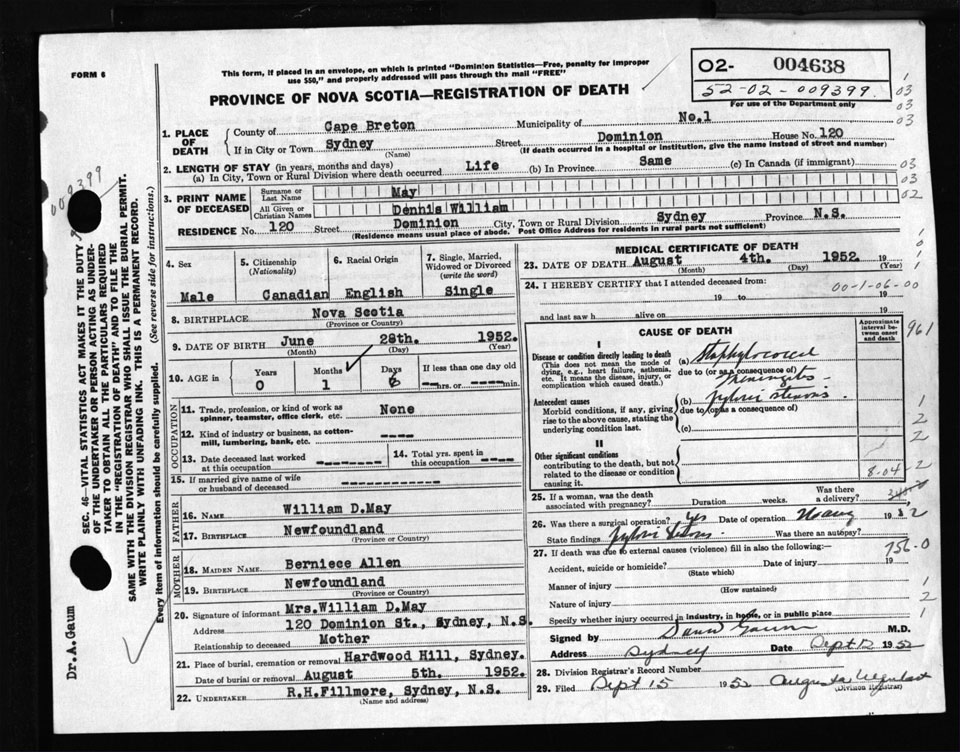 FORM 6
This form, if placed in an envelope, on which is printed "Dominion Statistics—Free, penalty for improper
use $50," and properly addressed will pass through the mail "FREE"
PROVINCE OF NOVA SCOTIA—REGISTRATION OF DEATH
02- 004638
52-02-009399
For use of the Department only
1. PLACE OF DEATH
County of Cape Breton Municipality of No.1
If in City or Town Sydney Street Dominion House No. 120
(Name) (If death occurred in a hospital or institution, give the name instead of street and number)
2. LENGTH OF STAY (in years, months and days)
(a) In City, Town or Rural Division where death occurred Life (b) In Province Same (c) In Canada (if immigrant)
3. PRINT NAME OF DECEASED
Surname or Last Name May
All Given or Christian Names Dennis William
RESIDENCE No. 120 Street Dominion City, Town or Rural Division Sydney Province N.S.
(Residence means usual place of abode. Post Office Address for residents in rural parts not sufficient)
4. Sex
Male
5. Citizenship (Nationality)
Canadian
6. Racial Origin
English
7. Single, Married, Widowed or Divorced (write the word)
Single
8. BIRTHPLACE Nova Scotia
(Province or Country)
9. DATE OF BIRTH June 28th. 1952.
(Month) (Day) (Year)
10. AGE in Years Months Days If less than one day old
0 1 hrs. or min.
OCCUPATION
11. Trade, profession, or kind of work as spinner, teamster, office clerk, etc. None
12. Kind of industry or business, as cotton-mill, lumbering, bank, etc. ----
13. Date deceased last worked at this occupation
14. Total yrs. spent in this occupation ----
15. If married give name of wife or husband of deceased
FATHER
16. NAME William D.May
17. BIRTHPLACE Newfoundland
(Province or Country)
MOTHER
18. MAIDEN NAME Berniece Allen
19. BIRTHPLACE Newfoundland
(Province or Country)
20. Signature of informant Mrs.William D.May
Address 120 Dominion St., Sydney, N.S.
Relationship to deceased Mother
21. Place of burial, cremation or removal Hardwood Hill, Sydney.
Date of burial or removal August 5th. 1952.
22. UNDERTAKER R.H.Fillmore, Sydney, N.S.
(Name and address)
MEDICAL CERTIFICATE OF DEATH
23. DATE OF DEATH August 4th. 1952. 19
(Month) (Day) (Year)
24. I HEREBY CERTIFY that I attended deceased from:
00-1-06-00
19 to 19
and last saw h alive on 19
CAUSE OF DEATH
Approximate interval between onset and death
961
I
Disease or condition directly leading to death
(This does not mean the mode of dying, e.g., heart failure, asthenia, etc. It means the disease, injury, or complication which caused death.)
(a) Staphylococcal
due to (or as a consequence of)
Meningitis
Antecedent causes
Morbid conditions, if any, giving rise to the above cause, stating the underlying condition last.
(b) Pyloric stenosis
due to (or as a consequence of)
(c)
II
Other significant conditions
contributing to the death, but not related to the disease or condition causing it.
8.04
25. If a woman, was the death associated with pregnancy? Duration weeks. Was there a delivery?
26. Was there a surgical operation? yes Date of operation 19
State findings Pyloric Stenosis Was there an autopsy?
27. If death was due to external causes (violence) fill in also the following:—
756-0
Accident, suicide or homicide? Date of injury 19
(State which)
Manner of injury
(How sustained)
Nature of injury
Specify whether injury occurred in industry, in home, or in public place
Signed by Gaum M.D.
Address Sydney Date Sept 12 1952
28. Division Registrar's Record Number
29. Filed Sept 15 1952 Augusta
(Division Registrar)
009399
SEC. 46—VITAL STATISTICS ACT MAKES IT THE DUTY
OF THE UNDERTAKER OR PERSON ACTING AS UNDER-
TAKER TO OBTAIN ALL THE PARTICULARS REQUIRED
IN THE "REGISTRATION OF DEATH" AND TO FILE THE
SAME WITH THE DIVISION REGISTRAR WHO SHALL ISSUE THE BURIAL PERMIT.
WRITE PLAINLY WITH UNFADING INK. THIS IS A PERMANENT RECORD.
Every item of information should be carefully supplied. (See reverse side for instructions.)
Dr.A.Gaum